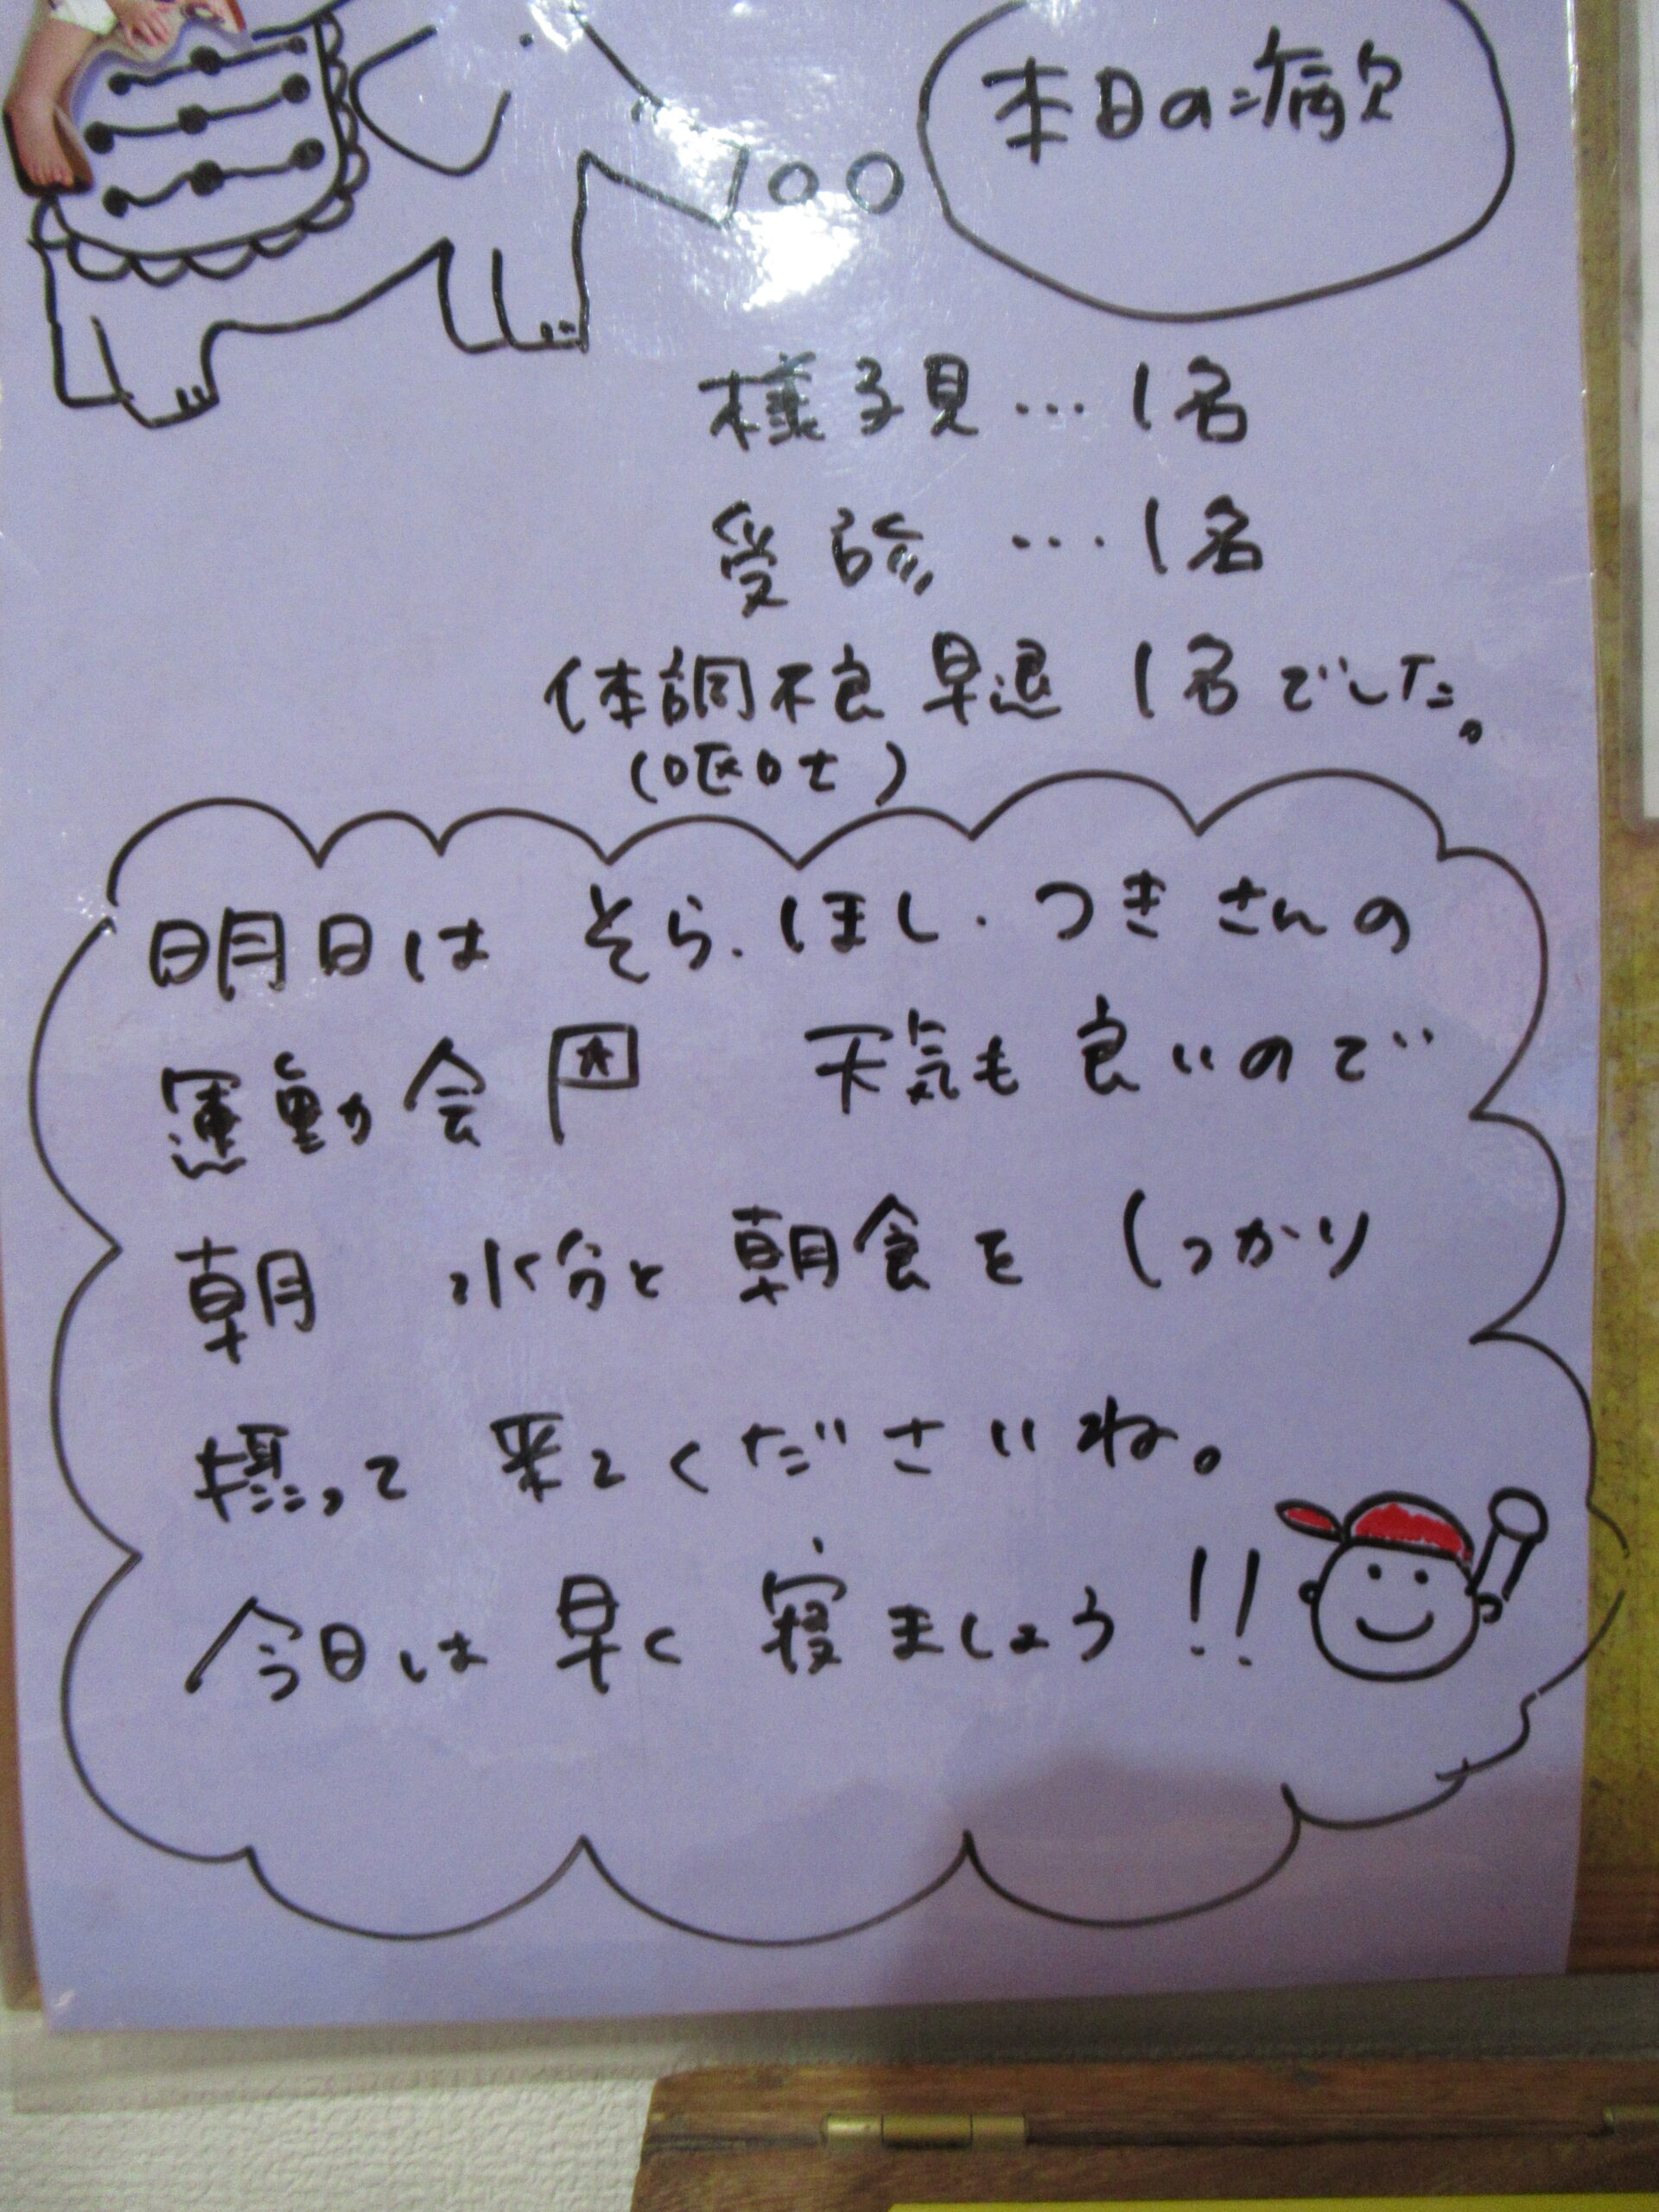 本日の病欠
様子見…1名
受診…1名
体調不良 早退 1名でした。
(嘔吐)
明日は そら.ほし.つきさんの
運動会 天気も良いので
朝 水分と朝食を しっかり
摂って 来てくださいね。
今日は 早く 寝ましょう!!